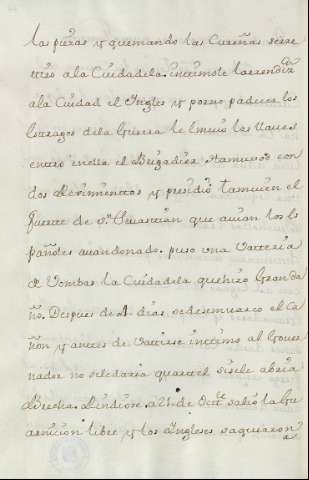 las piezas y quemando las Cureñas se re
tiro ala Ciudadela. intimole la rendizn
ala Ciudad el Ingles y por no padecer los
estragos dela Guerra le Embio las llaves
entro en ella el Brigadier Stanuvos con
dos Reximientos y presidiò tamvien el
fuerte de Sn Sevastian que avian los Es
pañoles avandonado. puso una Vatteria
de Bombas la Ciudadela que hizo Gran da
ño. Despues de 4 dias se desembarco el Ca
ñon y antes de Vattirse intimo al Gover
nador no se le daria quartel si se le abria
Brecha. Rindiose. a 21 de Octe salió la Gu
arnicion libre y los Ingleses saquearon